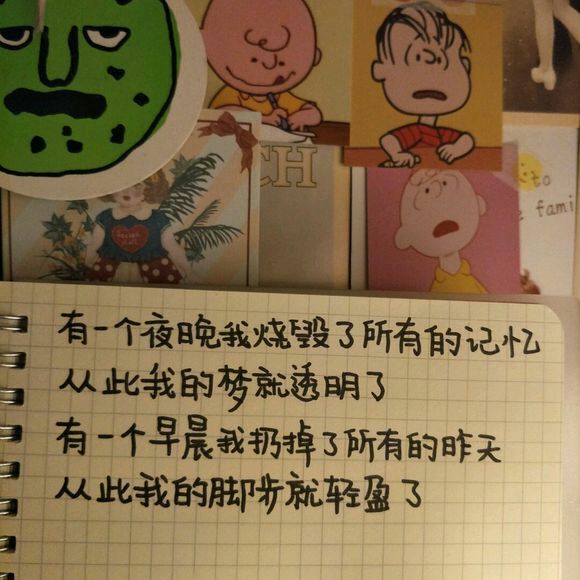 CH
to
e fami
有一个夜晚我烧毁了所有的记忆
从此我的梦就透明了
有一个早晨我扔掉了所有的昨天
从此我的脚步就轻盈了